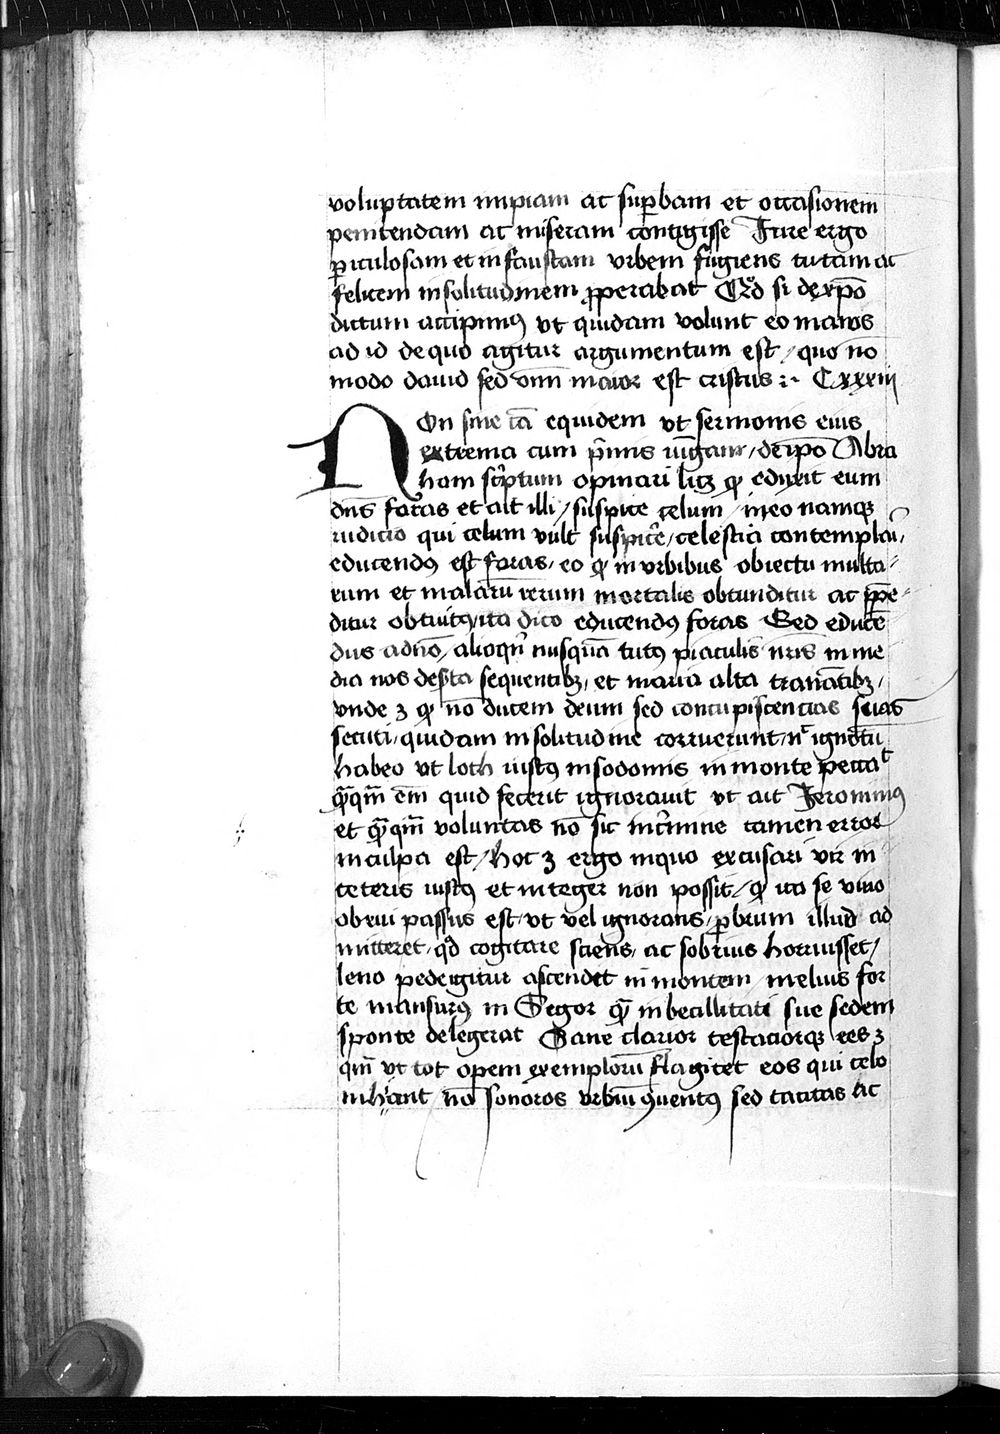 voluptatem impiam ac sup̲bam et occasionem
penitendam ac miseram contigisse Jure ergo
p̲iculosam et infaustam vrbem fugiens tutam ac
felicem insolitudinem ꝓperabat Qͦd si de xp̄o
dictum accipimꝰ vt quidam volunt eo maius
ad id de quo agitur argumentum est / quo nō
modo dauid sed om̄i maior est cristus :~ Cxxxiij
NOn sine cā equidem vt sermonis eius
extrema cum p̄mis iūgam / de ip̄o Abra
ham sc̓ptum opinari licꝫ ꝙ eduxit eum
dn̄s foras et ait illi / suspice celum / ineo namqꝫ
iudicio qui celum vult suspice᷑ / celestia contemplaī /
educendꝰ est foras / eo ꝙ in vrbibus obiectu multa-
rum et malarū rerum mortalis obtunditur ac p̲pe-
ditur obtuitꝰ / ita dico educendꝰ foras Sed educē
dus adn̄o / alioqn̓ nusquā tutꝰ piaculis nr̄is in me
dia nos des̓ta sequentibꝫ / et maria alta tranātibꝫ /
vnde ꝫ ꝙ nō ducem deum sed concupiscencias suas
secuti / quidam insolitudine corruerunt / nͨ ignotū
habeo vt loth iustꝰ insodomis in monte peccaͭ
qͣ̄qm̄ em̄ quid fecerit ignorauit vt ait Jeronimꝰ
et qͣ̄qm̄ voluntas nō sit incͥmine tamen error
inculpa est / hoc ꝫ ergo inquo excusari vir in
ceteris iustꝰ et integer non possit / ꝙ ita se vino
obrui passus est / vt vel ignorans / p̲brum illud ad
mitteret / qͦd cogitare sciens / ac sobrius horruisset /
leno pede igitur ascendet in montem / melius for
te mansurꝰ in Segor qͣ̄ inbecillitati sue sedem
sponte delegerat Sane clarior testaciorqꝫ res ꝫ
qm̄ vt tot opem exemplorū flagitet eos qui celo
inhyant nō sonoros vrbiū ꝯuentꝰ sed tacitas ac